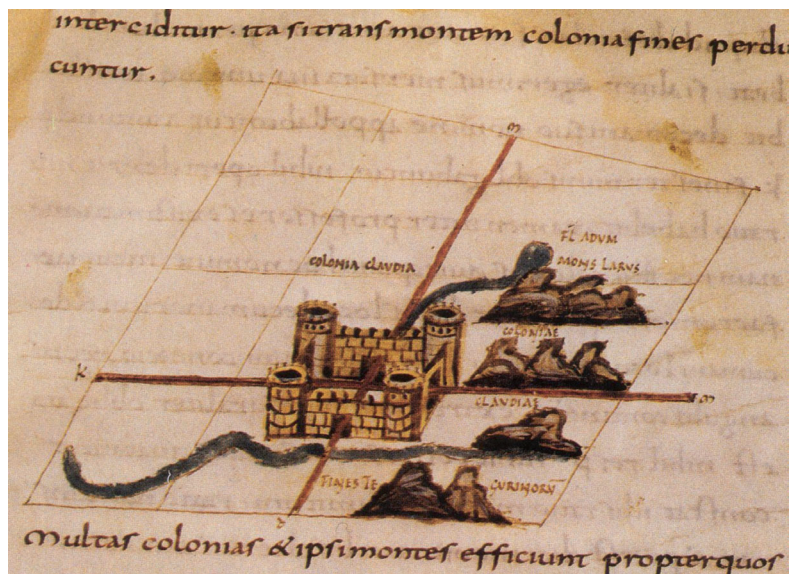 inter ciditur. ita si trans montem colonia fines perdu
cuntur.
m
FL ADUM
COLONIA CLAUDIA
MONS LARUS
COLONIAE
K
CLAUDIAE
FINES TE
multas colonias & ipsi montes efficiunt propter quos